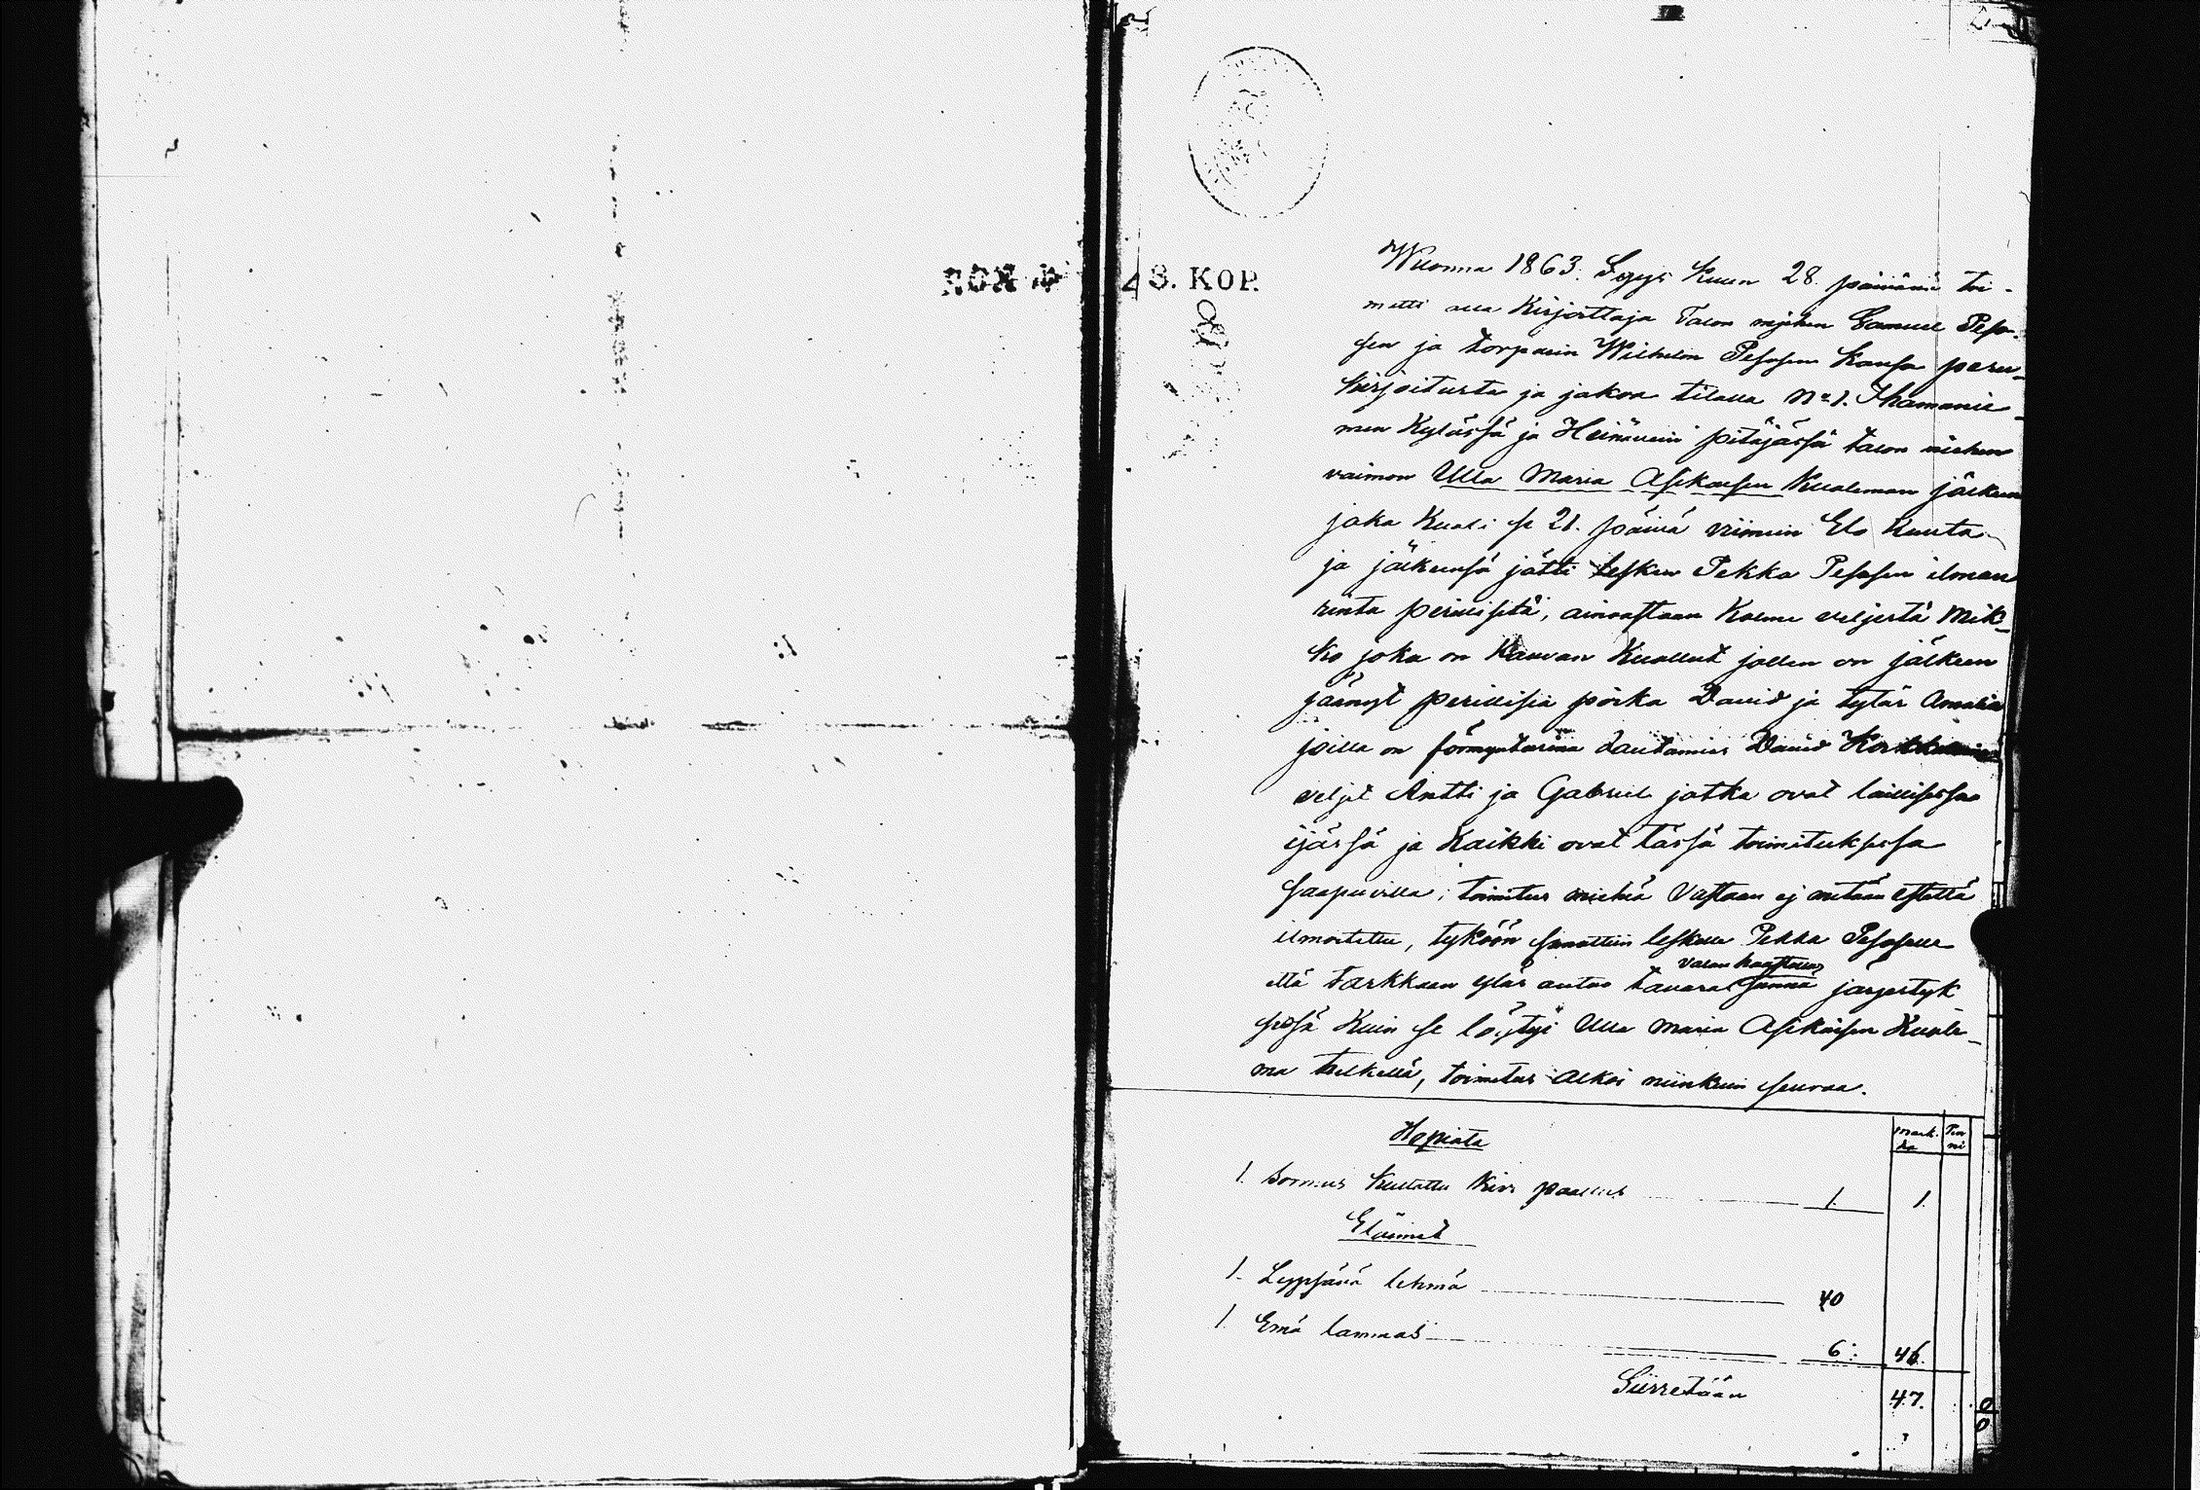 3. KOP.
Wuonna 1863. Sygys Kuun 28. päivänä toi-
mitti alla Kirjottaja Talon miehen Samuel Peso-
sen ja torparin Wilhelm Pesosen kansa peru-
kirjoitusta ja jakoa tilalla No 1. Ihamanie-
men Kylässä ja Heinävein pitäjässä talon miehen
vaimon Ulla Maria Asikaisen Kualeman jälkeen
joka Kuali se 21. päivä viimein Elo Kuuta
ja jälkeensä jätti lesken Pekka Pesosen ilman
rinta perillisitä, ainoastaan Kolme veljestä Mik-
ko joka on Kauvan Kuallut jollen on jälkeen
jäänyt perillisiä poika David ja tytär Amalia
joilla on förmyntärinä lautamies David
veljet Antti ja Gabriel jotka ovat laillisessa
ijässä ja Kaikki ovat tässä toimituksessa
saapuvilla; toimitus miehiä Vastaan ej mitään estettä
ilmoitettu, tyköön sanottiin leskelle Pekka Pesoselle
valan kaustalla
että tarkkaan ylös antaa tavarat samna järjestyk
sessä Kuin se löytyi Ulla Maria Asikaisen Kuole-
ma hetkellä, toimitus alkoi niinkuin seuraa.
Mark. Pen
ka ni
Hopiata
1. Sormus Kullattu Kivi paallut 1. 1.
Eläimet
1. Lypsävä lehmä 40
1. Emä lammas 6: 46.
Siirretään 47.